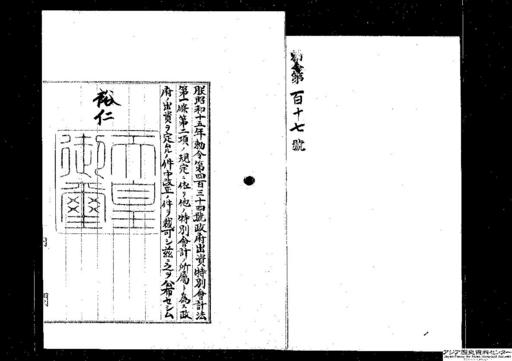 勅令第百十七號
朕昭和十五年勅令第四百三十四號政府出資特別會計法
第一條第二項ノ規定ニ依リ他ノ特別會計ノ所屬ト為ス政
府出資ヲ定ムルノ件中改正ノ件ヲ裁可シ茲ニ之ヲ公布セシム
裕仁
天皇
御璽
アジア歴史資料センター